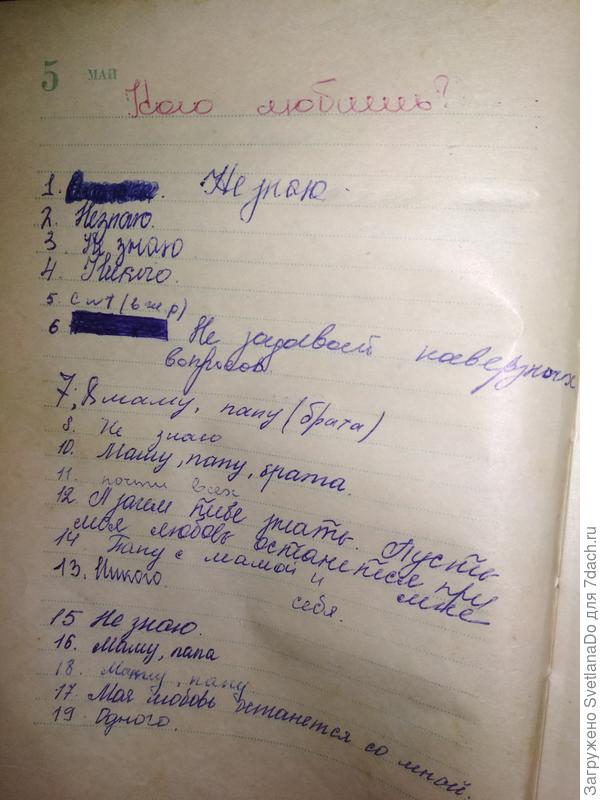 5 МАЙ
Кого любишь?
1. Не знаю.
2. Незнаю.
3. Не знаю
4. Никого.
5. с м
6 Не задавай каверзных
вопросов.
7. Я маму, папу (брата)
8. Не знаю
10. Маму, папу, брата.
11. почти всех
12. А зачем тибе знать. Пусть
моя любовь останеться при
мне
14. Папу с мамой и
себя.
13. Никого.
15 Не знаю.
16. Маму, папа
18. Маму, папу
17. Моя любовь останется со мной.
19. Одного.
Загружено SvetlanaDo для 7dach.ru